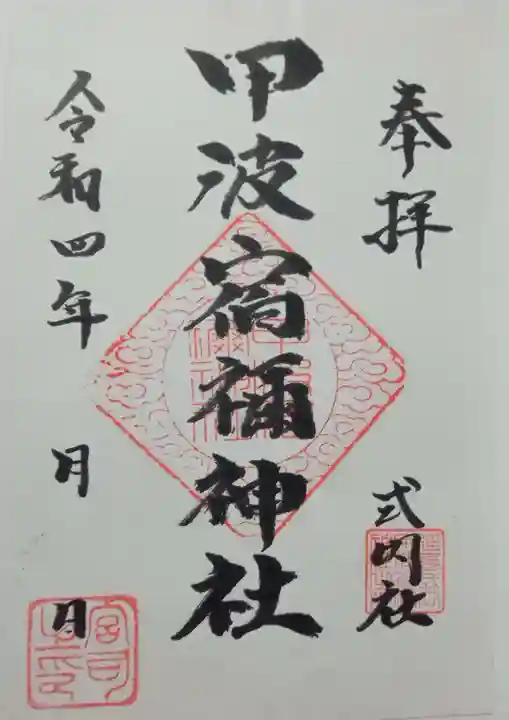 奉拝
式内社
甲波宿禰神社
令和四年 月 日
宮司之印